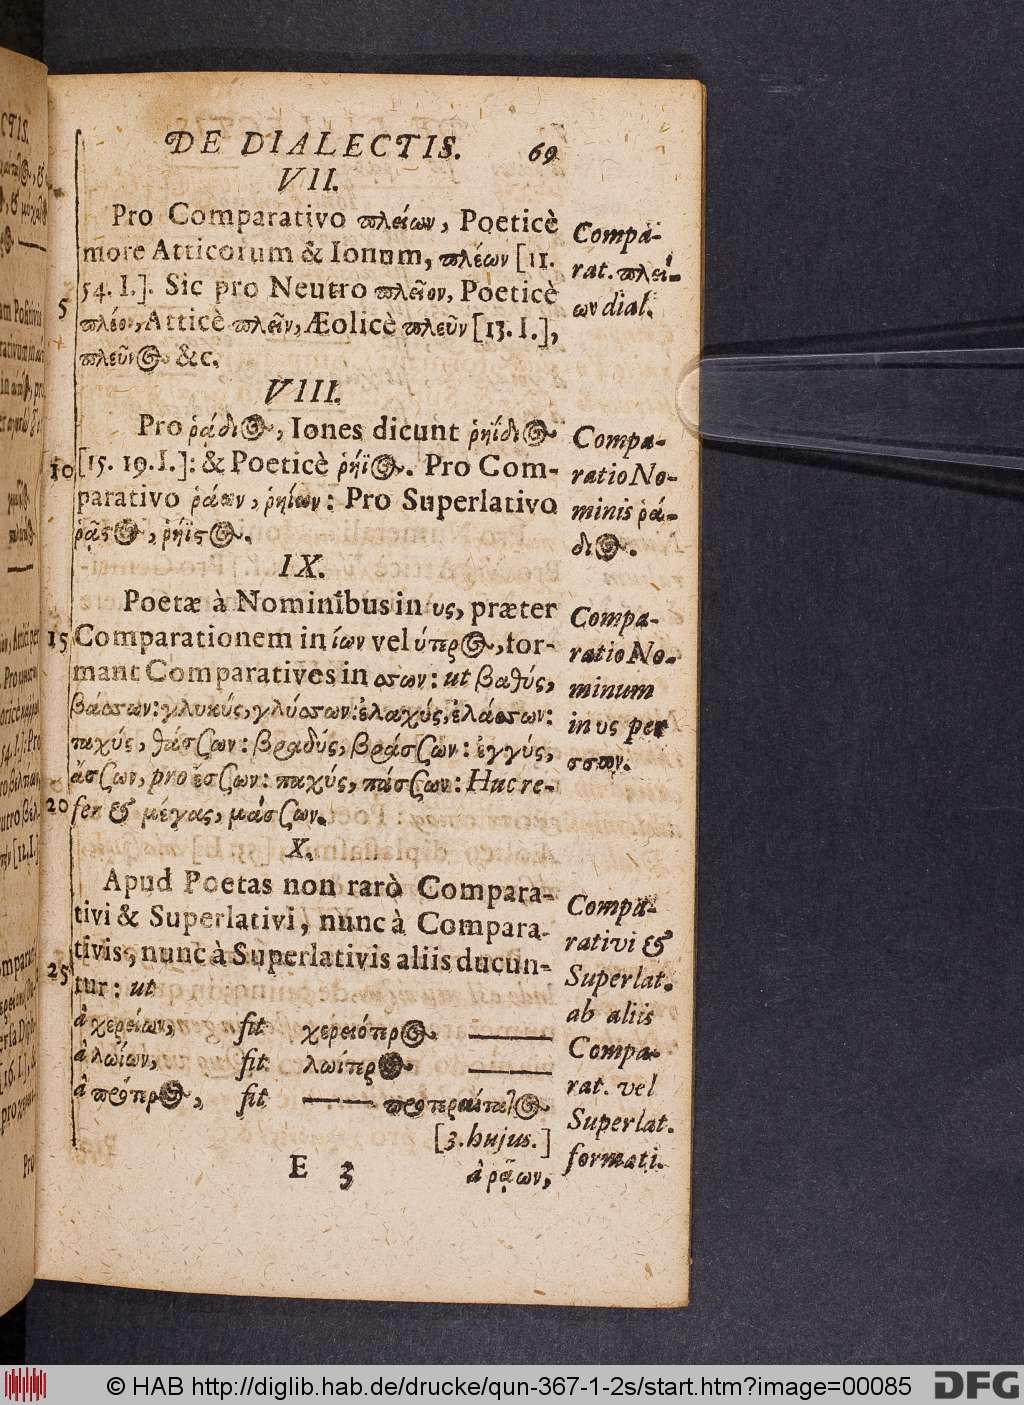 DE DIALECTIS. 69
VII.
Pro Comparativo πλείων, Poeticè
more Atticorum & Ionum, πλέων [11.
54. I.]. Sic pro Neutro πλεῖον, Poeticè
5
πλέον, Atticè πλεῖν, Æolicè πλεῦν [13. I.],
πλεῦνος &c.
Compa-
rat. πλεί-
ων dial.
VIII.
Pro ῥᾴδιος, Iones dicunt ῥηΐδιος
10 [15. 19. I.]: & Poeticè ῥήϊος. Pro Com-
parativo ῥάων, ῥηίων: Pro Superlativo
ῥᾷστος, ῥήϊστος.
Compa-
ratio No-
minis ῥά-
διος.
IX.
Poetæ à Nominibus in υς, præter
15 Comparationem in ίων vel ύτερος, for-
mant Comparatives in σσων: ut βαθύς,
βάσσων: γλυκύς, γλύσσων: ἐλαχύς, ἐλάσσων:
παχύς, θάσσων: βραδύς, βράσσων: ἐγγύς,
ἄσσων, pro ἔσσων: παχύς, πάσσων: Huc re-
20 fer & μέγας, μάσσων.
Compa-
ratio No-
minum
in υς per
σσων.
X.
Apud Poetas non rarò Compara-
tivi & Superlativi, nunc à Compara-
tivis, nunc à Superlativis aliis ducun-
25 tur: ut
à χερείων, fit χερειότερος, ———
à λωΐων, fit λωΐτερος ———
à πρότερος, fit ——— προτεραίτατος
[3. hujus.]
Compa-
rativi &
Superlat.
ab aliis
Compa-
rat. vel
Superlat.
formati.
E 3 à ῥᾴων,
© HAB http://diglib.hab.de/drucke/qun-367-1-2s/start.htm?image=00085 DFG